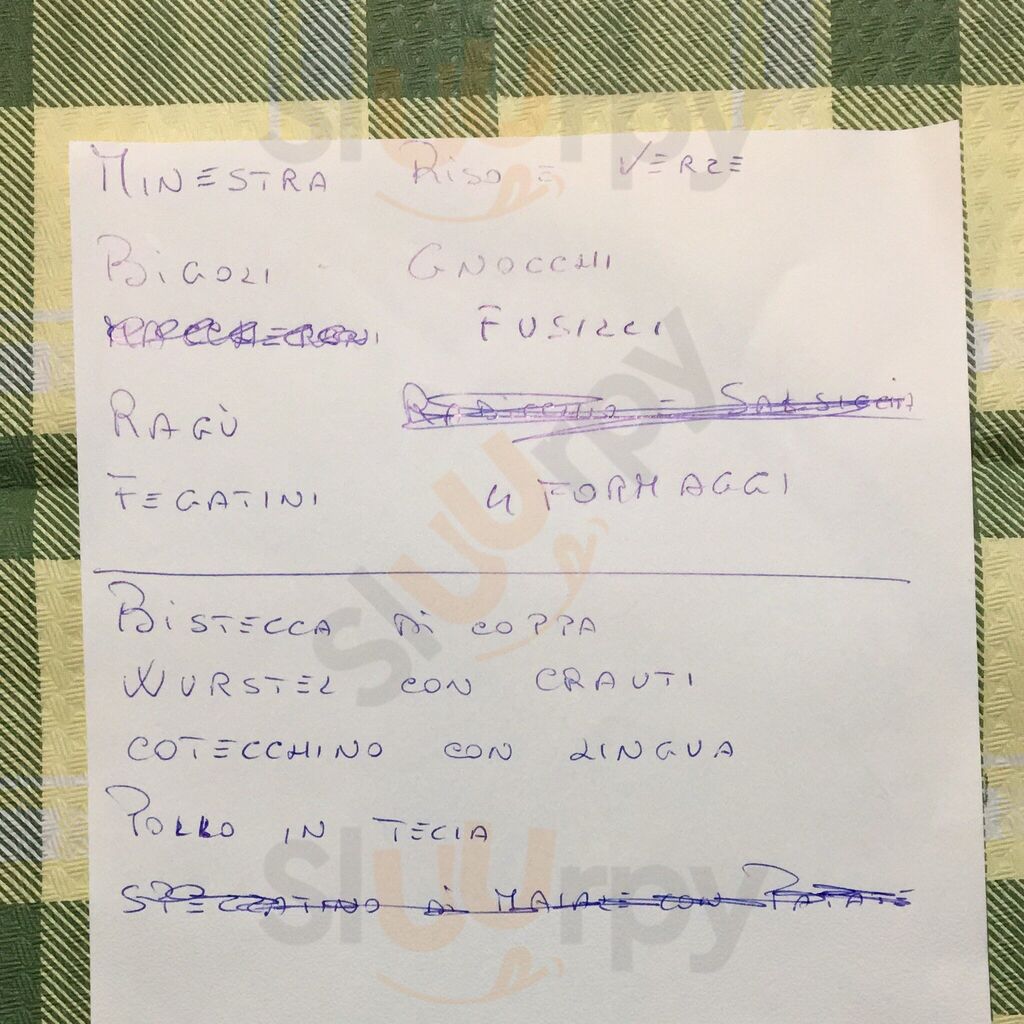 MINESTRA RISO E VERZE
BIGOLI - GNOCCHI
MACCHERONI FUSILLI
RAGÙ RADICCHIO E SALSICCIA
FEGATINI 4 FORMAGGI
BISTECCA DI COPPA
WURSTEL CON CRAUTI
COTECCHINO CON LINGUA
POLLO IN TECIA
SPEZZATINO DI MAIALE CON PATATE
sluurpy
sluurpy
sluurpy